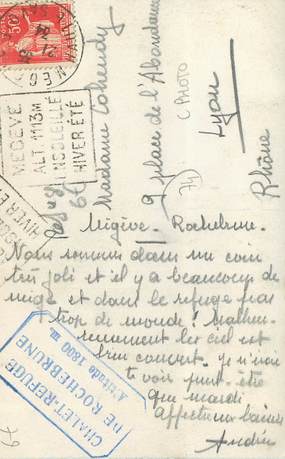 Megève. Rochebrune.
Nous sommes dans un coin
très joli et il y a beaucoup de
neige et dans le refuge pas
trop de monde! Malheu-
reusement le ciel est
bien couvert. je n'irai
te voir peut-être
que mardi
affectueux baisers
Andrée
Madame Cohendy
9 place de l'Abondance
Lyon
Rhône
C PHOTO
74
MEGEVE
ALT. 1113M
INSOLEILLÉ
HIVER ÉTÉ
CHALET-REFUGE
DE ROCHEBRUNE
Altitude 1800 m.
50
64